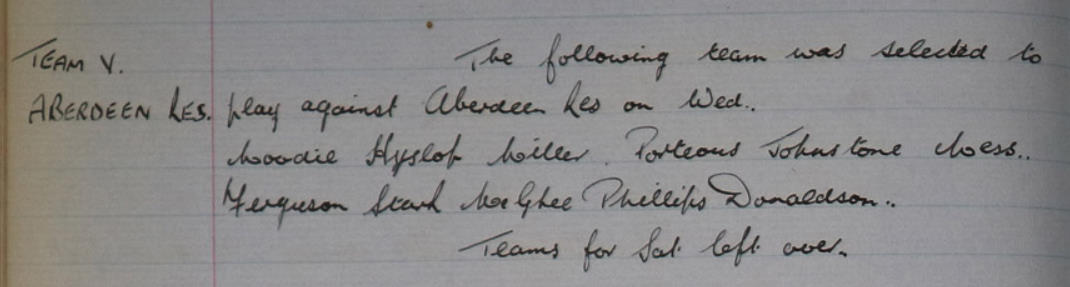 TEAM V.
ABERDEEN RES.
The following team was selected to
play against Aberdeen Res on Wed..
Moodie Hyslop Miller. Porteous Johnstone Moess..
Ferguson Stark McGhee Phillips Donaldson..
Teams for Sat. left over.